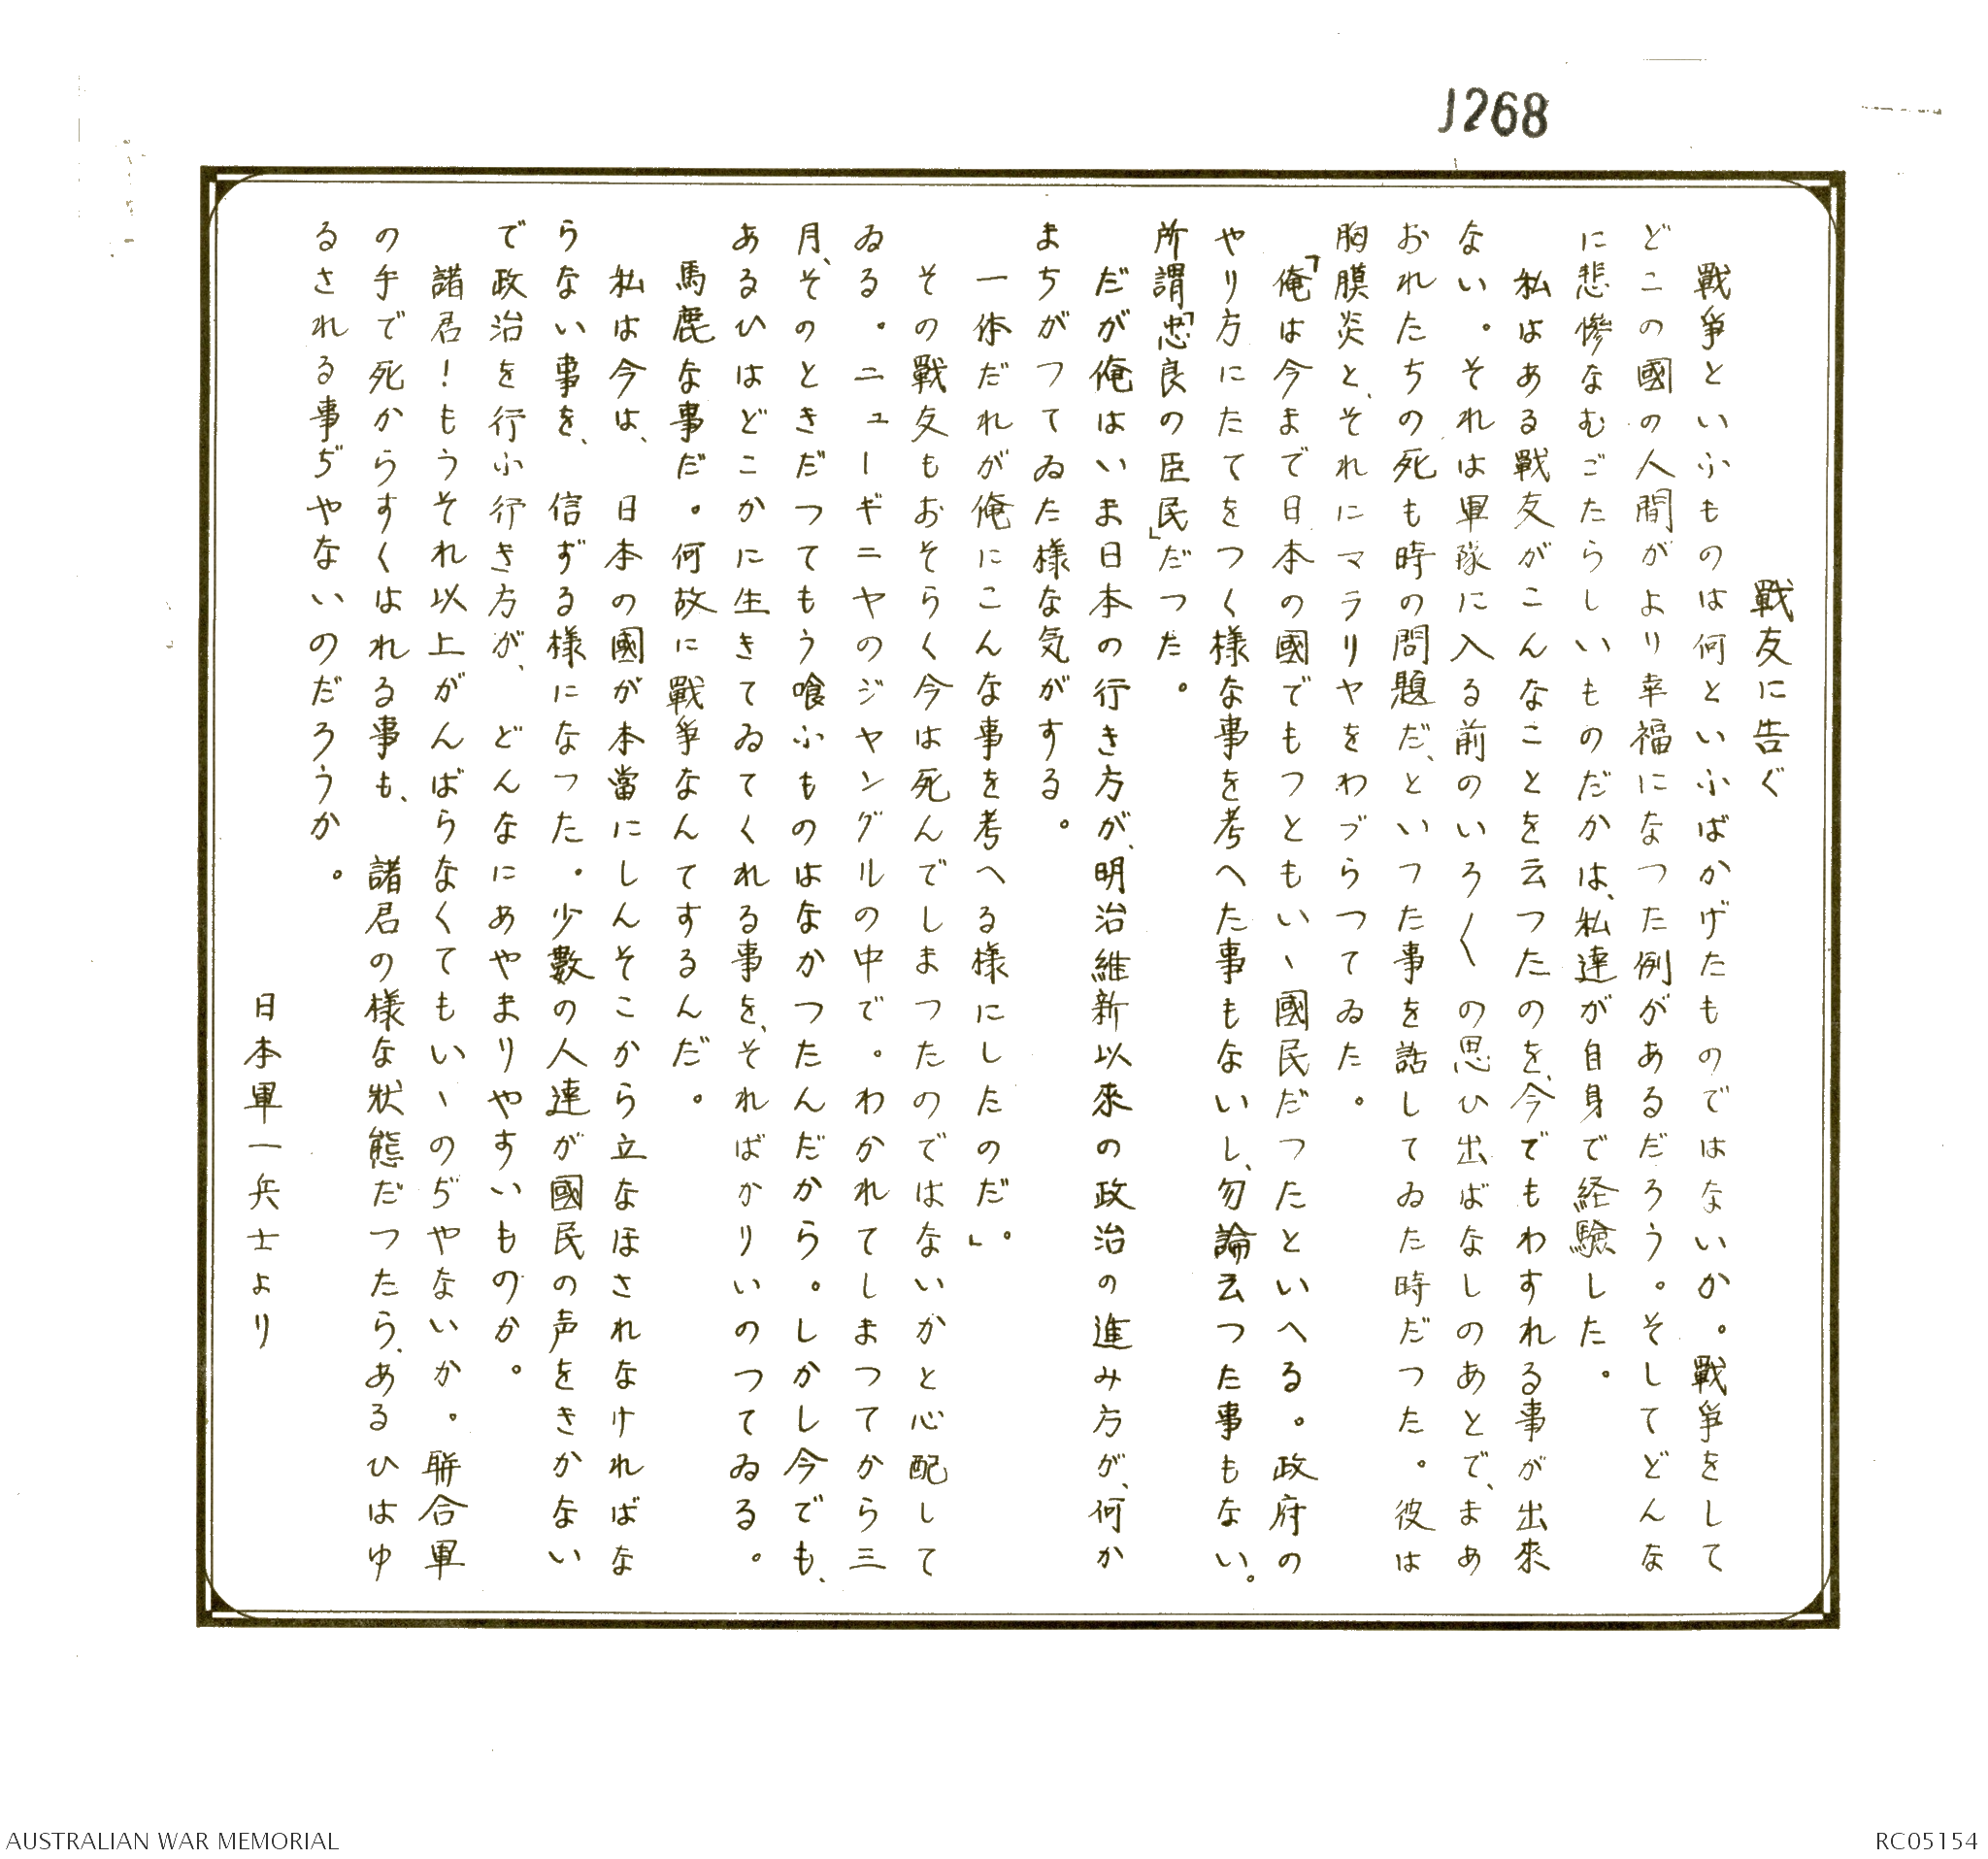 J268
戰友に告ぐ
戰爭といふものは何といふばかげたものではないか。戰爭をして
どこの國の人間がより幸福になつた例があるだろう。そしてどんな
に悲慘なむごたらしいものだかは、私達が自身で経驗した。
私はある戰友がこんなことを云つたのを、今でもわすれる事が出來
ない。それは軍隊に入る前のいろ〱の思ひ出ばなしのあとで、まあ
おれたちの死も時の問題だ、といつた事を話してゐた時だつた。彼は
胸膜炎と、それにマラリヤをわづらつてゐた。
「俺は今まで日本の國でもつともいゝ國民だつたといへる。政府の
やり方にたてをつく様な事を考へた事もないし、勿論云つた事もない。
所謂「忠良の臣民」だつた。
だが俺はいま日本の行き方が、明治維新以來の政治の進み方が、何か
まちがつてゐた様な気がする。
一体だれが俺にこんな事を考へる様にしたのだ」。
その戰友もおそらく今は死んでしまつたのではないかと心配して
ゐる。ニューギニヤのジヤングルの中で。わかれてしまつてから三
月、そのときだつてもう喰ふものはなかつたんだから。しかし今でも、
あるひはどこかに生きてゐてくれる事を、そればかりいのつてゐる。
馬鹿な事だ。何故に戰爭なんてするんだ。
私は今は、日本の國が本當にしんそこから立なほされなければな
らない事を、信ずる様になつた。少數の人達が國民の声をきかない
で政治を行ふ行き方が、どんなにあやまりやすいものか。
諸君！もうそれ以上がんばらなくてもいゝのぢやないか。聯合軍
の手で死からすくはれる事も、諸君の様な狀態だつたら、あるひはゆ
るされる事ぢやないのだろうか。
日本軍一兵士より
AUSTRALIAN WAR MEMORIAL
RC05154